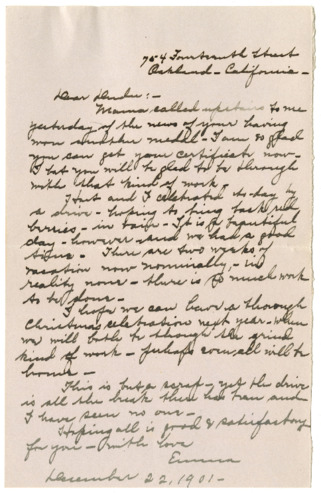 754 Fourteenth Street
Oakland - California -
Dear :-
Mamma called upstairs to me
yesterday of the news of your having
won another medal - I am so glad
you can get your certificate now -
I bet you will be glad to be through
with that kind of work.
and I celebrated to-day by
a drive - hoping to bring back red
berries - in vain - It is a beautiful
day - however and we had a good
time - There are two weeks of
vacation now nominally, - in
reality none - there is so much work
to be done -
I hope we can have a thorough
Christmas celebration next year - when
we will both be through the grind
kind of work - perhaps all will be
home -
This is but a scrap - yet the drive
is all the break there has been and
I have seen no one -
Hoping all is good & satisfactory
for you - with love
Emma
December 22, 1901 -